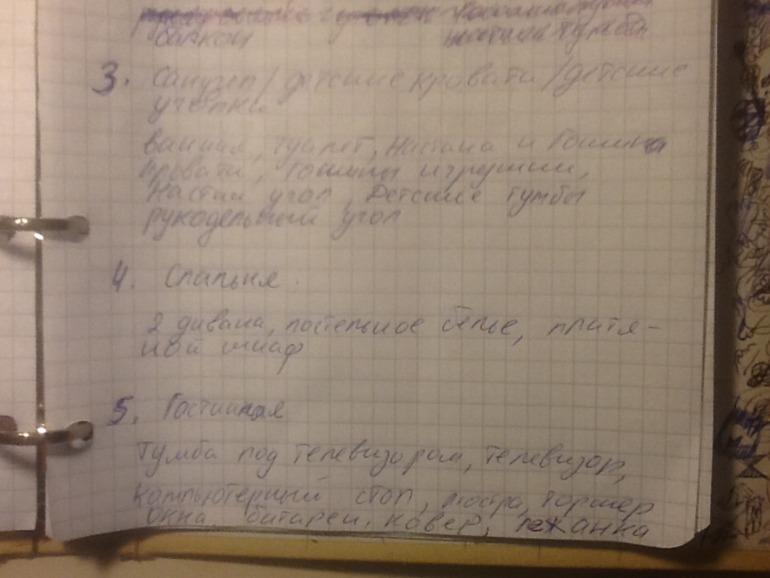 балкон тумбы
3. Санузел / детские кровати / детские
уголки
ванная, туалет, Настина и Гошина
кровати, Гошины игрушки,
Настин угол, Детские тумбы
рукодельный угол
4. Спальня.
2 дивана, постельное белье, платя-
ной шкаф
5. Гостиная
Тумба под телевизором, телевизор,
компьютерный стол, люстра, торшер
окна батареи, ковер, лежанка